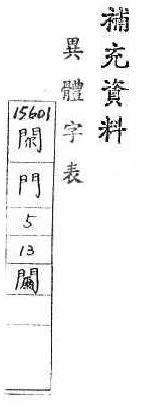 補充資料
異體字表
15601
門
5
13